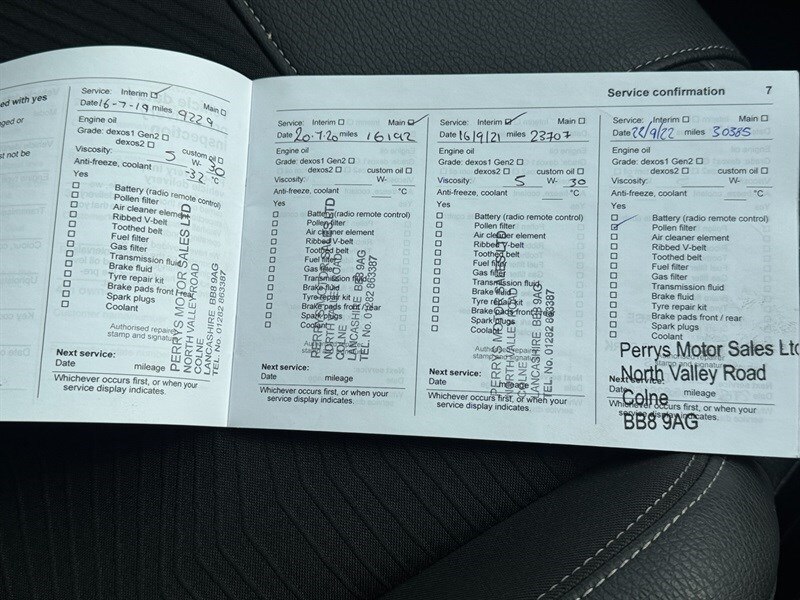 Service confirmation 7
ed with yes
ged or
st not be
Service: Interim ☑ Main ☐
Date 16-7-19 miles 9229
Engine oil
Grade: dexos1 Gen2 ☐
dexos2 ☐ custom oil ☐
Viscosity: 5 W- 30
Anti-freeze, coolant -32 °C
Yes
☐ Battery (radio remote control)
☐ Pollen filter
☐ Air cleaner element
☐ Ribbed V-belt
☐ Toothed belt
☐ Fuel filter
☐ Gas filter
☐ Transmission fluid
☐ Brake fluid
☐ Tyre repair kit
☐ Brake pads front / rear
☐ Spark plugs
☐ Coolant
Authorised repair
stamp and signature
PERRYS MOTOR SALES LTD
NORTH VALLEY ROAD
COLNE
LANCASHIRE BB8 9AG
TEL. No. 01282 863387
Next service:
Date mileage
Whichever occurs first, or when your
service display indicates.
Service: Interim ☐ Main ☑
Date 20.7.20 miles 16192
Engine oil
Grade: dexos1 Gen2 ☐
dexos2 ☐ custom oil ☐
Viscosity: W-
Anti-freeze, coolant °C
Yes
☐ Battery (radio remote control)
☐ Pollen filter
☐ Air cleaner element
☐ Ribbed V-belt
☐ Toothed belt
☐ Fuel filter
☐ Gas filter
☐ Transmission fluid
☐ Brake fluid
☐ Tyre repair kit
☐ Brake pads front / rear
☐ Spark plugs
☐ Coolant
PERRYS MOTOR SALES LTD
NORTH VALLEY ROAD
COLNE
LANCASHIRE BB8 9AG
TEL. No. 01282 863387
Next service:
Date mileage
Whichever occurs first, or when your
service display indicates.
Service: Interim ☑ Main ☐
Date 16/9/21 miles 23707
Engine oil
Grade: dexos1 Gen2 ☐
dexos2 ☐ custom oil ☐
Viscosity: 5 W- 30
Anti-freeze, coolant °C
Yes
☐ Battery (radio remote control)
☐ Pollen filter
☐ Air cleaner element
☐ Ribbed V-belt
☐ Toothed belt
☐ Fuel filter
☐ Gas filter
☐ Transmission fluid
☐ Brake fluid
☐ Tyre repair kit
☐ Brake pads front / rear
☐ Spark plugs
☐ Coolant
PERRYS MOTOR SALES LTD
NORTH VALLEY ROAD
COLNE
LANCASHIRE BB8 9AG
TEL. No. 01282 863387
Next service:
Date mileage
Whichever occurs first, or when your
service display indicates.
Service: Interim ☑ Main ☐
Date 22/9/22 miles 30385
Engine oil
Grade: dexos1 Gen2 ☐
dexos2 ☐ custom oil ☐
Viscosity: W-
Anti-freeze, coolant °C
Yes
☐ Battery (radio remote control)
☑ Pollen filter
☐ Air cleaner element
☐ Ribbed V-belt
☐ Toothed belt
☐ Fuel filter
☐ Gas filter
☐ Transmission fluid
☐ Brake fluid
☐ Tyre repair kit
☐ Brake pads front / rear
☐ Spark plugs
☐ Coolant
Perrys Motor Sales Ltd
North Valley Road
Colne
BB8 9AG
Next service:
mileage
Whichever occurs first, or when your
service display indicates.